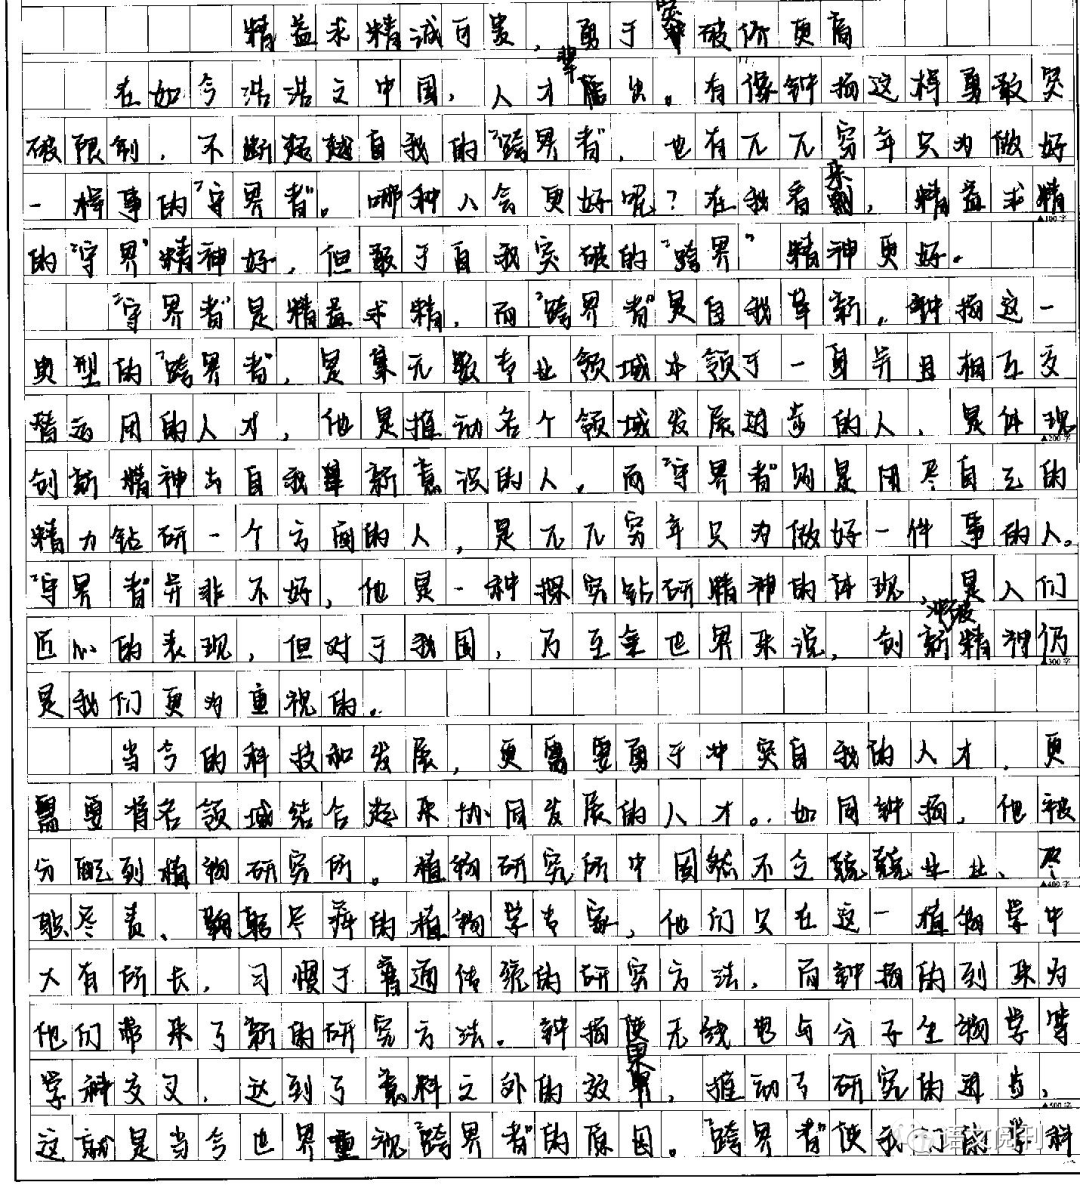 精益求精诚可贵，勇于突破价更高
在如今浩浩之中国，人才辈出。有像钟扬这样勇敢突
破限制，不断超越自我的"跨界者"，也有兀兀穷年只为做好
一样事的"守界者"。哪种人会更好呢？在我看来，精益求精
▲100字
的"守界"精神好，但敢于自我突破的"跨界"精神更好。
"守界者"是精益求精，而"跨界者"是自我革新。钟扬这一
典型的"跨界者"，是集无数专业领域本领于一身并且相互交
替运用的人才，他是推动各个领域发展进步的人，是体现
▲200字
创新精神与自我革新意识的人。而"守界者"则是用尽自己的
精力钻研一个方面的人，是兀兀穷年只为做好一件事的人。
"守界者"并非不好，他是一种探究钻研精神的体现，是人们
匠心的表现，但对于我国，乃至全世界来说，创新冲破精神仍
▲300字
是我们更为重视的。
当今的科技和发展，更需要勇于冲突自我的人才，更
需要将各领域结合起来协同发展的人才。如同钟扬，他被
分配到植物研究所。植物研究所中固然不乏兢兢业业、尽
▲400字
职尽责、鞠躬尽瘁的植物学专家，他们只在这一植物学中
大有所长，习惯于普通传统的研究方法，而钟扬的到来为
他们带来了新的研究方法。钟扬使无线电与分子生物学等
学科交叉，达到了意料之外的效果，推动了研究的进步，
▲500字
这就是当今世界重视"跨界者"的原因。"跨界者"使我们的学科
语文阅刊